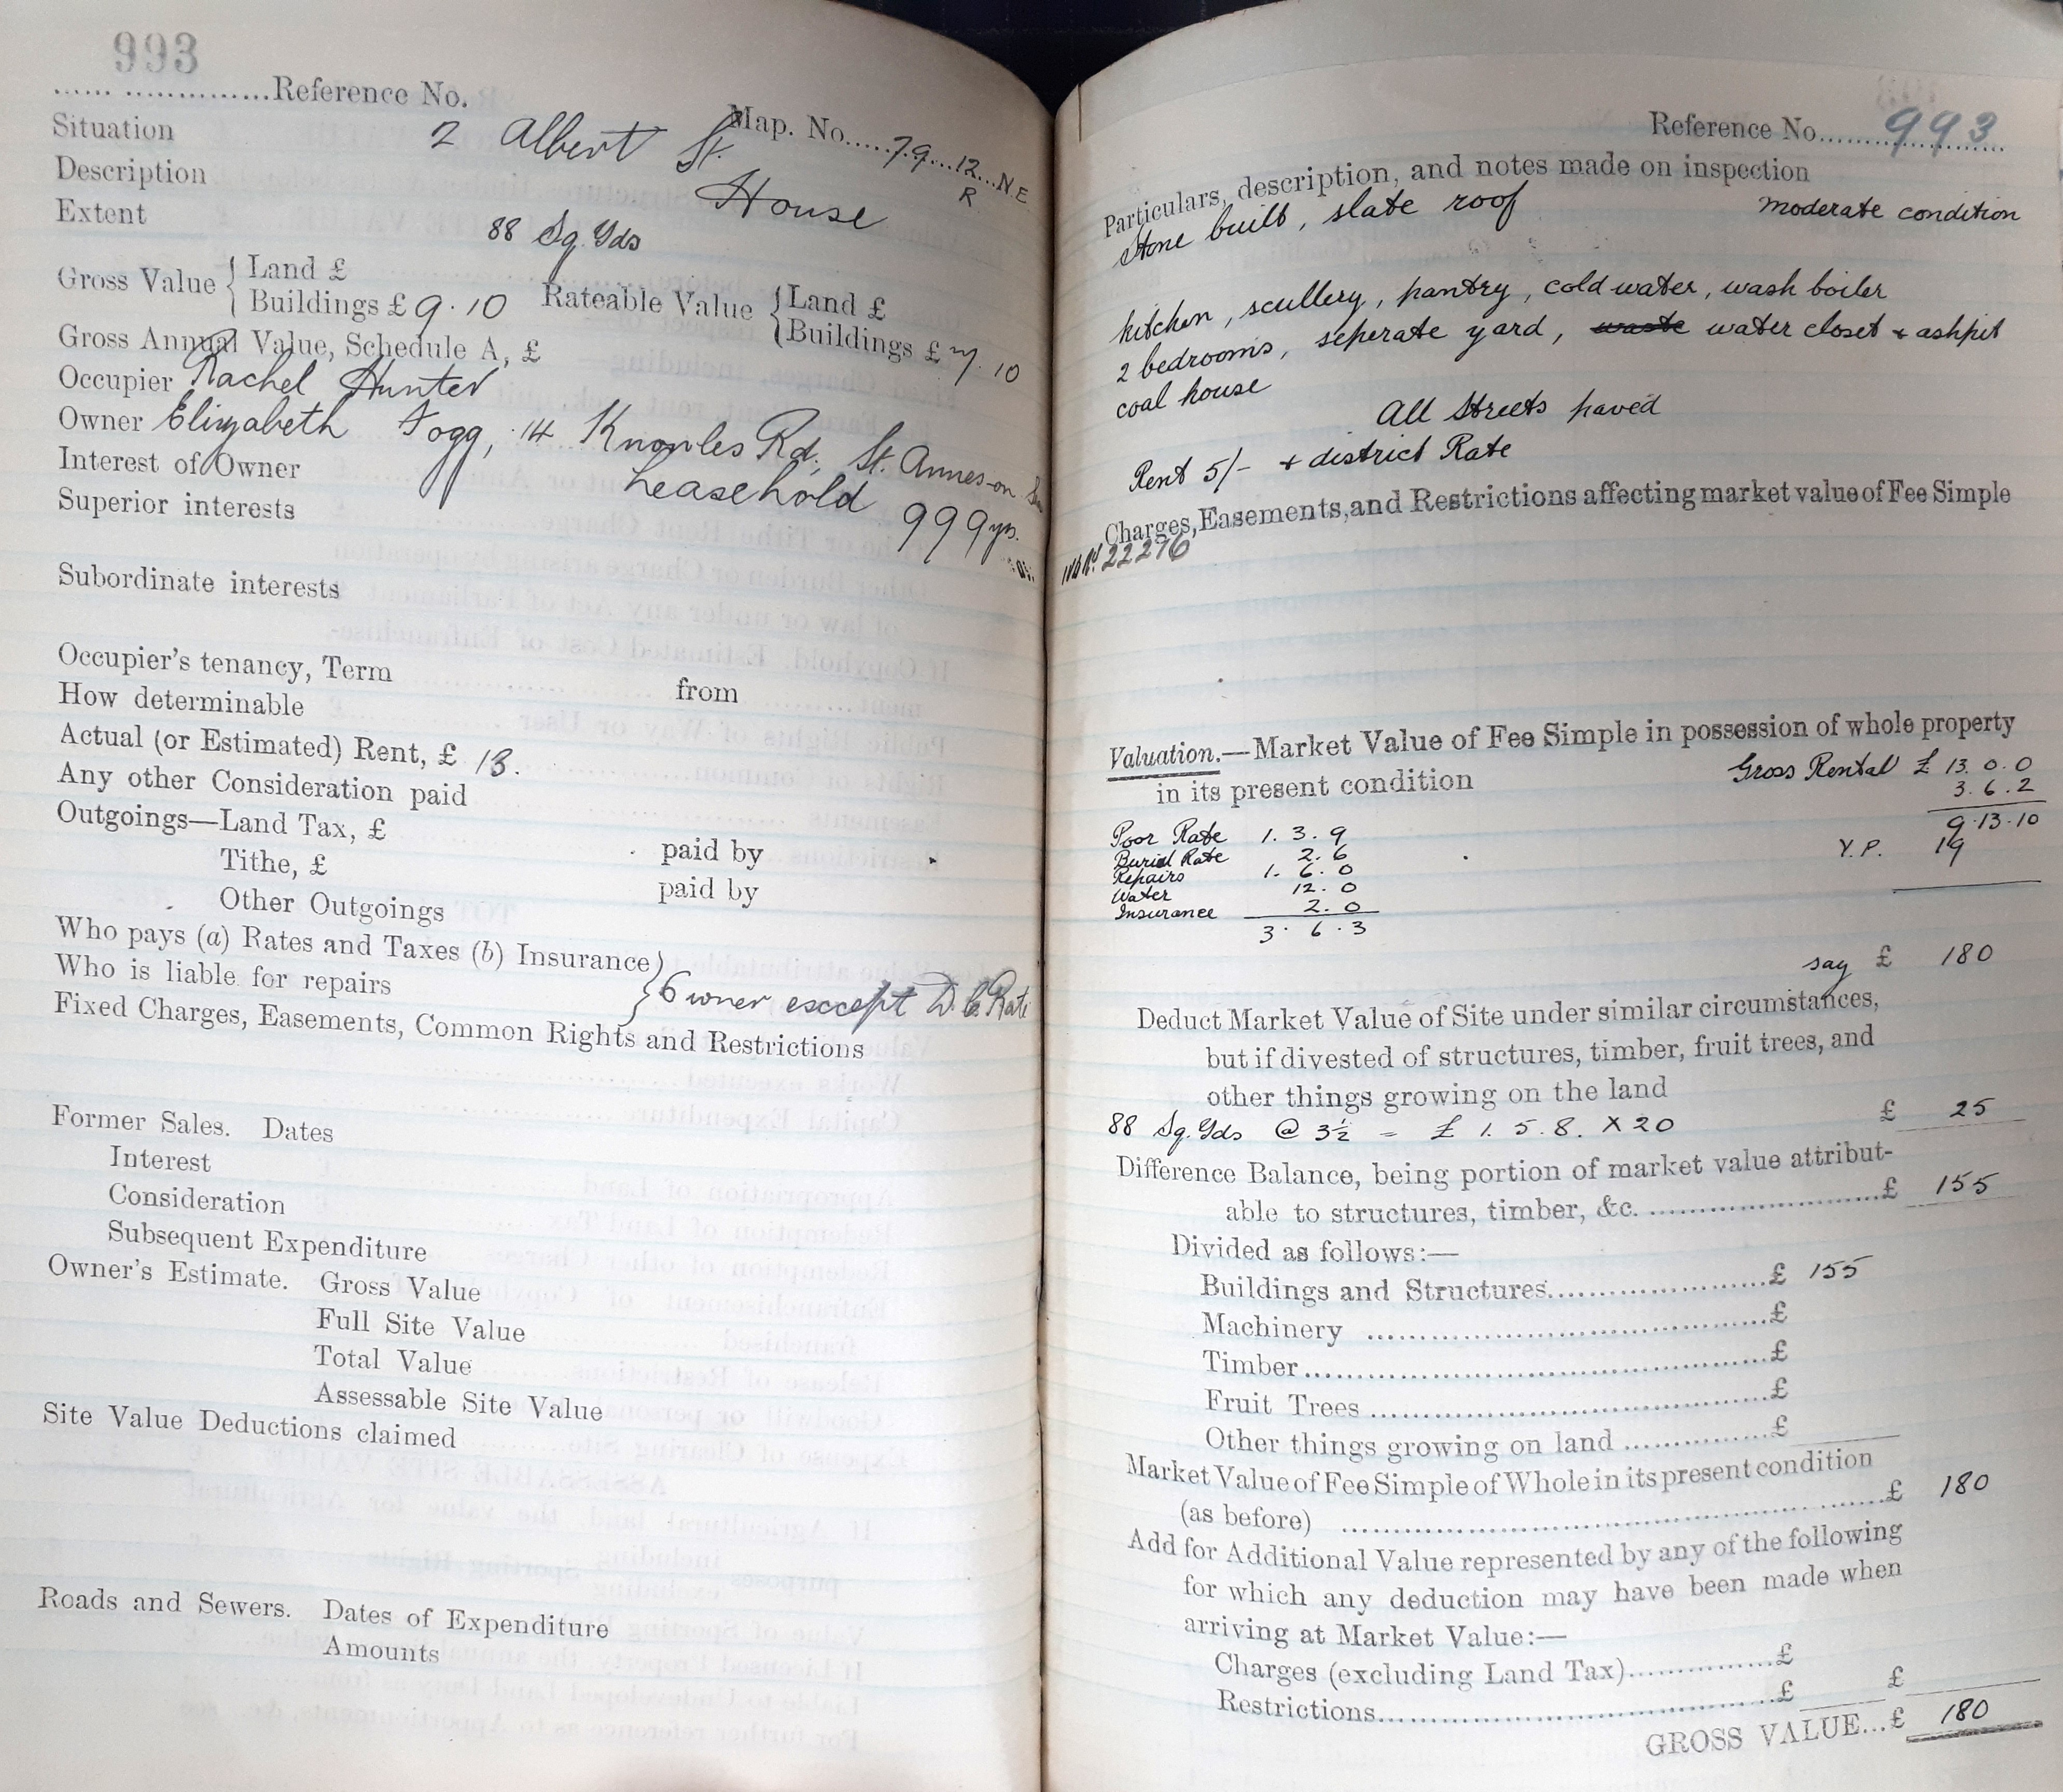 993
.................Reference No.
Map. No.....79...12...N E
R
Situation 2 Albert St.
Description House
Extent 88 Sq. Yds
Gross Value { Land £
Buildings £ 9.10 Rateable Value { Land £
Buildings £ 7.10
Gross Annual Value, Schedule A, £
Occupier Rachel Hunter
Owner Elizabeth Fogg, 14 Knowles Rd, St. Annes-on Sea
Interest of Owner Leasehold 999 yrs.
Superior interests
Subordinate interests
Occupier's tenancy, Term from
How determinable
Actual (or Estimated) Rent, £ 13.
Any other Consideration paid
Outgoings—Land Tax, £ paid by
Tithe, £ paid by
Other Outgoings
Who pays (a) Rates and Taxes (b) Insurance }
Who is liable for repairs } Owner except D. C. Rate
Fixed Charges, Easements, Common Rights and Restrictions
Former Sales. Dates
Interest
Consideration
Subsequent Expenditure
Owner's Estimate. Gross Value
Full Site Value
Total Value
Assessable Site Value
Site Value Deductions claimed
Roads and Sewers. Dates of Expenditure
Amounts
Reference No......993
Particulars, description, and notes made on inspection
Stone built, slate roof moderate condition
kitchen, scullery, pantry, cold water, wash boiler
2 bedrooms, seperate yard, waste water closet + ashpit
coal house
All Streets paved
Rent 5/- + district Rate
Charges, Easements, and Restrictions affecting market value of Fee Simple
22276
Valuation.—Market Value of Fee Simple in possession of whole property
in its present condition Gross Rental £ 13. 0. 0
3. 6. 2
Poor Rate 1. 3. 9 9.13.10
Burial Rate 2. 6 Y.P. 19
Repairs 1. 6. 0
Water 12. 0
Insurance 2. 0
3. 6. 3
say £ 180
Deduct Market Value of Site under similar circumstances,
but if divested of structures, timber, fruit trees, and
other things growing on the land
88 Sq. Yds @ 3½ = £ 1. 5. 8. X 20 £ 25
Difference Balance, being portion of market value attribut-
able to structures, timber, &c. ........................£ 155
Divided as follows:—
Buildings and Structures......................£ 155
Machinery ..........................................£
Timber................................................£
Fruit Trees ..........................................£
Other things growing on land ...............£
Market Value of Fee Simple of Whole in its present condition
(as before) ......................................................£ 180
Add for Additional Value represented by any of the following
for which any deduction may have been made when
arriving at Market Value:—
Charges (excluding Land Tax)................£
Restrictions..........................................£ £
GROSS VALUE...£ 180